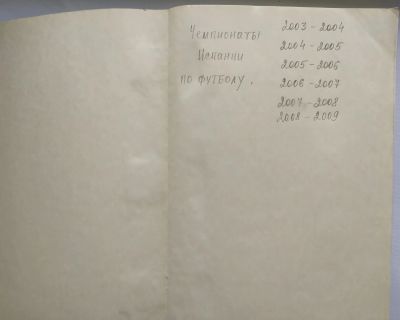 Чемпионаты
Испании
по футболу.
2003 - 2004
2004 - 2005
2005 - 2006
2006 - 2007
2007 - 2008
2008 - 2009